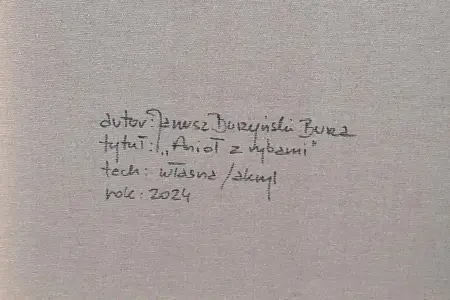 autor: Janusz Burzyński Burza
tytuł: „Anioł z rybami"
tech: własna/akryl
rok: 2024